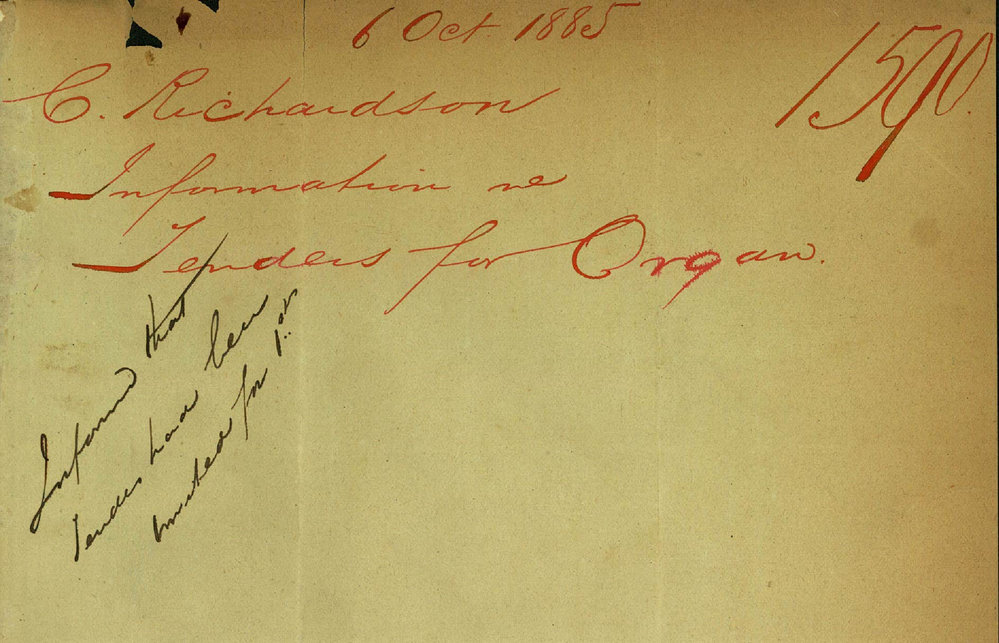 6 Oct 1885
1590.
C. Richardson
Information re
Tenders for Organ.
Informed that
tenders had been
invited for